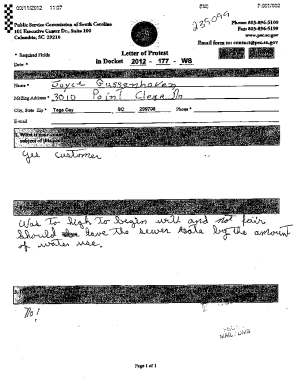 03/11/2012 11:07 (FAX) P.001/002
239099
Public Service Commission of South Carolina
101 Executive Center Dr., Suite 100
Columbia, SC 29210
Phone: 803-896-5100
Fax: 803-896-5199
www.psc.sc.gov
Email form to: contact@psc.sc.gov
* Required Fields
Letter of Protest
Date *
in Docket 2012 - 177 - WS
Name * Joyce
Mailing Address * 3010 Point Clear Dr
City, State Zip * Tega Cay SC 29708 Phone *
E-mail
1. What is your
subject of this
yes Customer
Was to high to begin with and not fair
Should have the sewer rate by the amount
of water use.
No!
MAIL / DMS
Page 1 of 1